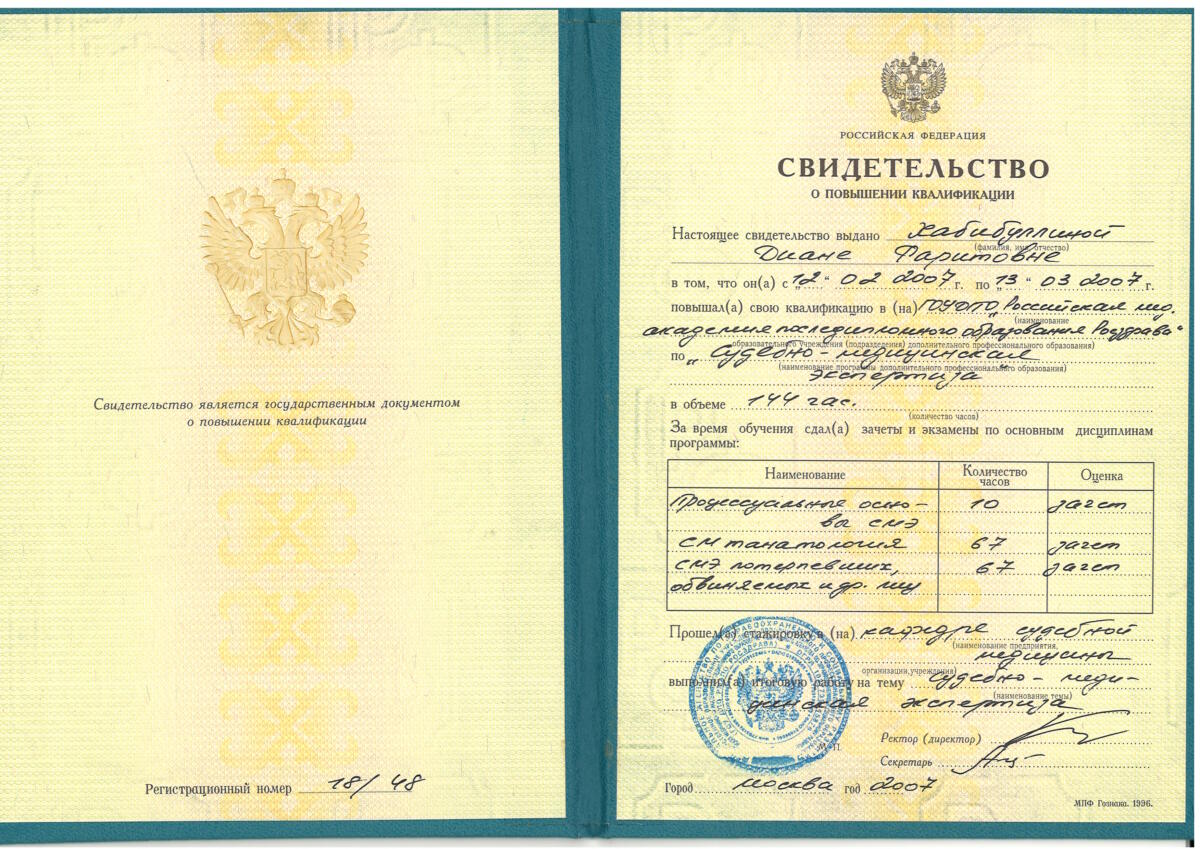 Свидетельство является государственным документом
о повышении квалификации
Регистрационный номер 18/48
РОССИЙСКАЯ ФЕДЕРАЦИЯ
СВИДЕТЕЛЬСТВО
О ПОВЫШЕНИИ КВАЛИФИКАЦИИ
Настоящее свидетельство выдано Хабибуллиной
(фамилия, имя, отчество)
Диане Фаритовне
в том, что он(а) с „12“ 02 2007 г. по „13“ 03 2007 г.
повышал(а) свою квалификацию в (на) ГОУ ДПО „Российская мед.
(наименование
академия последипломного образования Росздрава“
образовательного учреждения (подразделения) дополнительного профессионального образования)
по „Судебно-медицинская
(наименование программы дополнительного профессионального образования)
экспертиза“
в объеме 144 час.
(количество часов)
За время обучения сдал(а) зачеты и экзамены по основным дисциплинам
программы:
Наименование Количество часов Оценка
Процессуальные осно- 10 зачет
вы СМЭ
СМ танатология 67 зачет
СМЭ потерпевших, 67 зачет
обвиняемых и др. лиц
Прошел(а) стажировку в (на) кафедре судебной
(наименование предприятия,
медицины
организации, учреждения)
выполнил(а) итоговую работу на тему судебно-меди-
(наименование темы)
цинская экспертиза
М.П.
Ректор (директор)
Секретарь
Город Москва год 2007
МПФ Гознака. 1996.